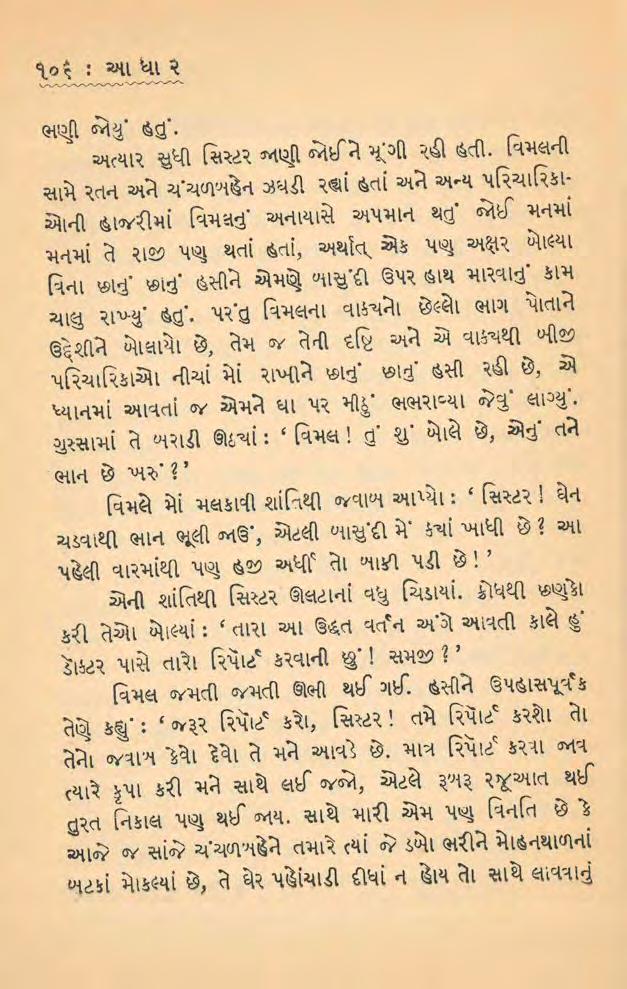 ૧૦૬ : આ ધા ર
ભણી જોયું હતું.
અત્યાર સુધી સિસ્ટર જાણી જોઈને મૂંગી રહી હતી. વિમલની
સામે રતન અને ચંચળબહેન ઝઘડી રહ્યાં હતાં અને અન્ય પરિચારિકા-
ઓની હાજરીમાં વિમલનું અનાયાસે અપમાન થતું જોઈ મનમાં
મનમાં તે રાજી પણ થતાં હતાં, અર્થાત્ એક પણ અક્ષર બોલ્યા
વિના છાનું છાનું હસીને એમણે બાસુંદી ઉપર હાથ મારવાનું કામ
ચાલુ રાખ્યું હતું. પરંતુ વિમલના વાક્યનો છેલ્લો ભાગ પોતાને
ઉદ્દેશીને બોલાયો છે, તેમ જ તેની દૃષ્ટિ અને એ વાક્યથી બીજી
પરિચારિકાઓ નીચાં મોં રાખીને છાનું છાનું હસી રહી છે, એ
ધ્યાનમાં આવતાં જ એમને ઘા પર મીઠું ભભરાવ્યા જેવું લાગ્યું.
ગુસ્સામાં તે બરાડી ઊઠ્યાં : ‘ વિમલ ! તું શું બોલે છે, એનું તને
ભાન છે ખરું ? ’
વિમલે મોં મલકાવી શાંતિથી જવાબ આપ્યો : ‘ સિસ્ટર ! ઘેન
ચડવાથી ભાન ભૂલી જાઉં, એટલી બાસુંદી મેં ક્યાં ખાધી છે ? આ
પહેલી વારમાંથી પણ હજી અર્ધી તો બાકી પડી છે ! ’
એની શાંતિથી સિસ્ટર ઊલટાનાં વધુ ચિડાયાં. ક્રોધથી છણકો
કરી તેઓ બોલ્યાં : ‘ તારા આ ઉદ્ધત વર્તન અંગે આવતી કાલે હું
ડૉક્ટર પાસે તારો રિપૉર્ટ કરવાની છું ! સમજી ? ’
વિમલ જમતી જમતી ઊભી થઈ ગઈ. હસીને ઉપહાસપૂર્વક
તેણે કહ્યું : ‘ જરૂર રિપૉર્ટ કરો, સિસ્ટર ! તમે રિપૉર્ટ કરશો તો
તેનો જવાબ કેવો દેવો તે મને આવડે છે. માત્ર રિપૉર્ટ કરવા જાવ
ત્યારે કૃપા કરી મને સાથે લઈ જજો, એટલે રૂબરૂ રજૂઆત થઈ
તુરત નિકાલ પણ થઈ જાય. સાથે મારી એમ પણ વિનતિ છે કે
આજે જ સાંજે ચંચળબહેને તમારે ત્યાં જે ડબો ભરીને મોહનથાળનાં
બટકાં મોકલ્યાં છે, તે ઘેર પહોંચાડી દીધાં ન હોય તો સાથે લાવવાનું